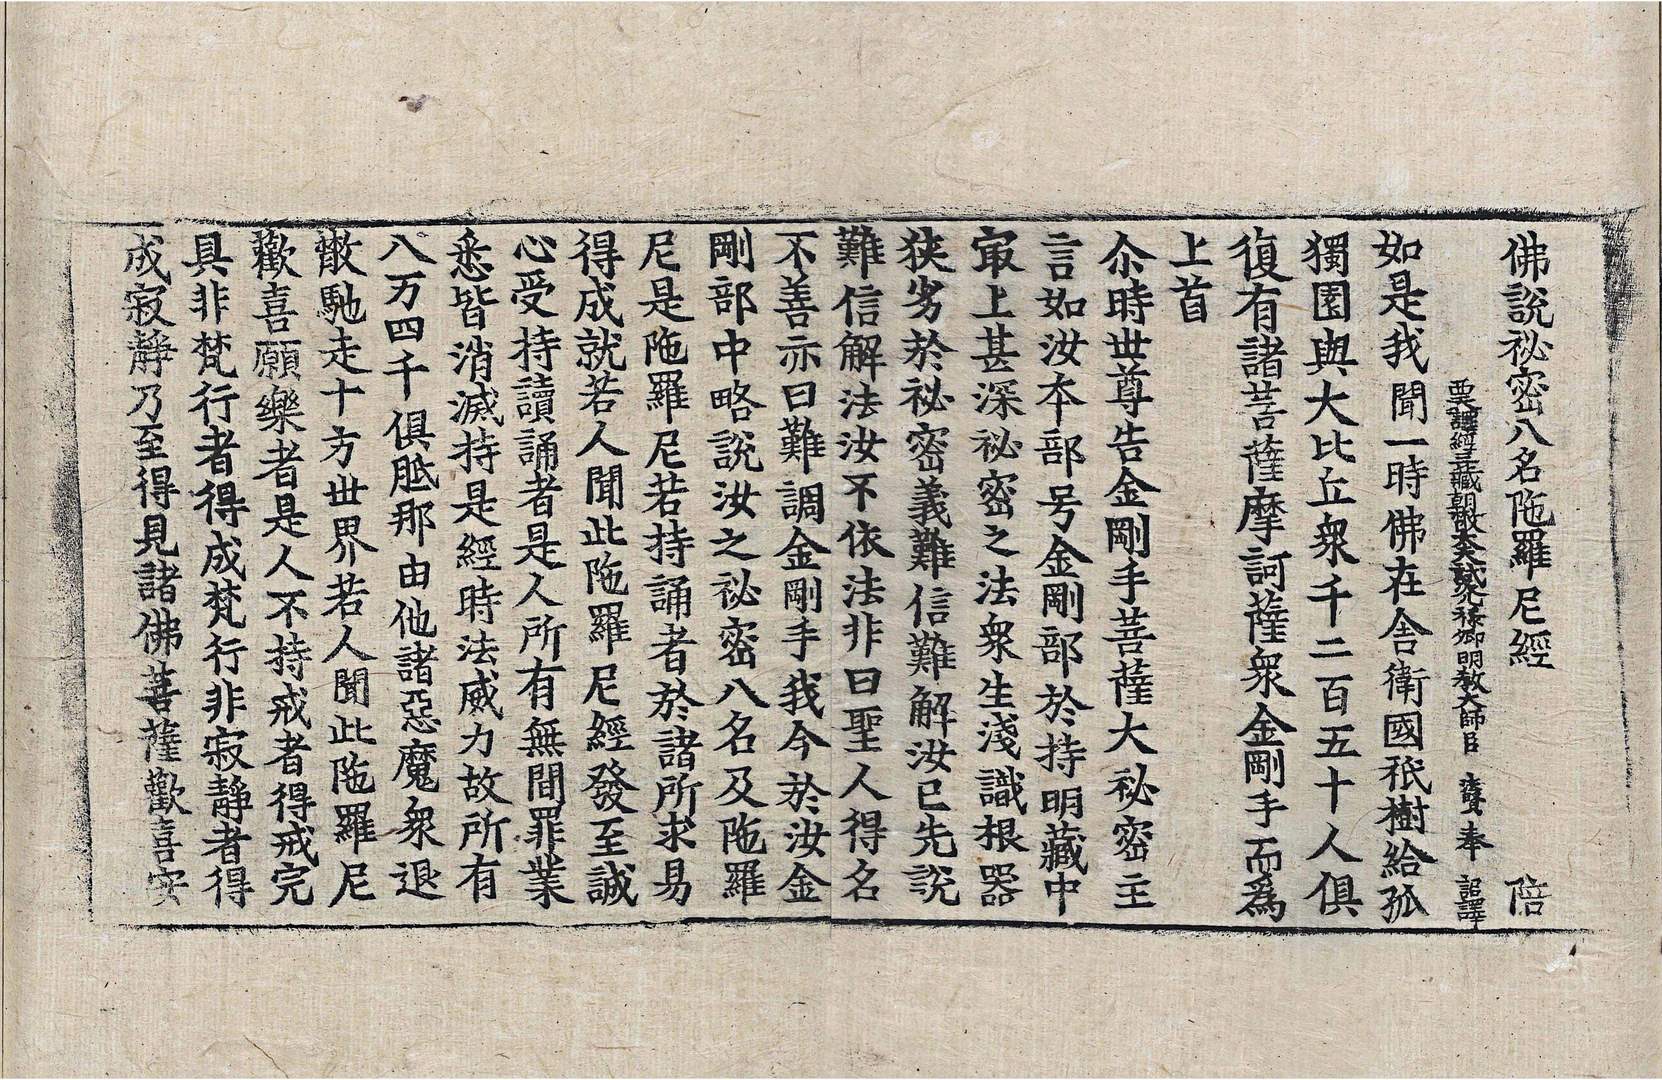 佛說祕密八名陁羅尼經 陪
西天譯經三藏朝散大夫試鴻臚卿明教大師臣 法賢奉 詔譯
如是我聞一時佛在舍衛國祇樹給孤
獨園與大比丘衆千二百五十人俱
復有諸菩薩摩訶薩衆金剛手而爲
上首
尒時世尊告金剛手菩薩大祕密主
言如汝本部号金剛部於持明藏中
㝡上甚深祕密之法衆生淺識根器
狹劣於祕密義難信難解汝已先說
難信解法汝不依法非曰聖人得名
不善亦曰難調金剛手我今於汝金
剛部中略說汝之祕密八名及陁羅
尼是陁羅尼若持誦者於諸所求易
得成就若人聞此陁羅尼經發至誠
心受持讀誦者是人所有無間罪業
悉皆消滅持是經時法威力故所有
八万四千俱胝那由他諸惡魔衆退
散馳走十方世界若人聞此陁羅尼
歡喜願樂者是人不持戒者得戒完
具非梵行者得成梵行非寂靜者得
成寂靜乃至得見諸佛菩薩歡喜安